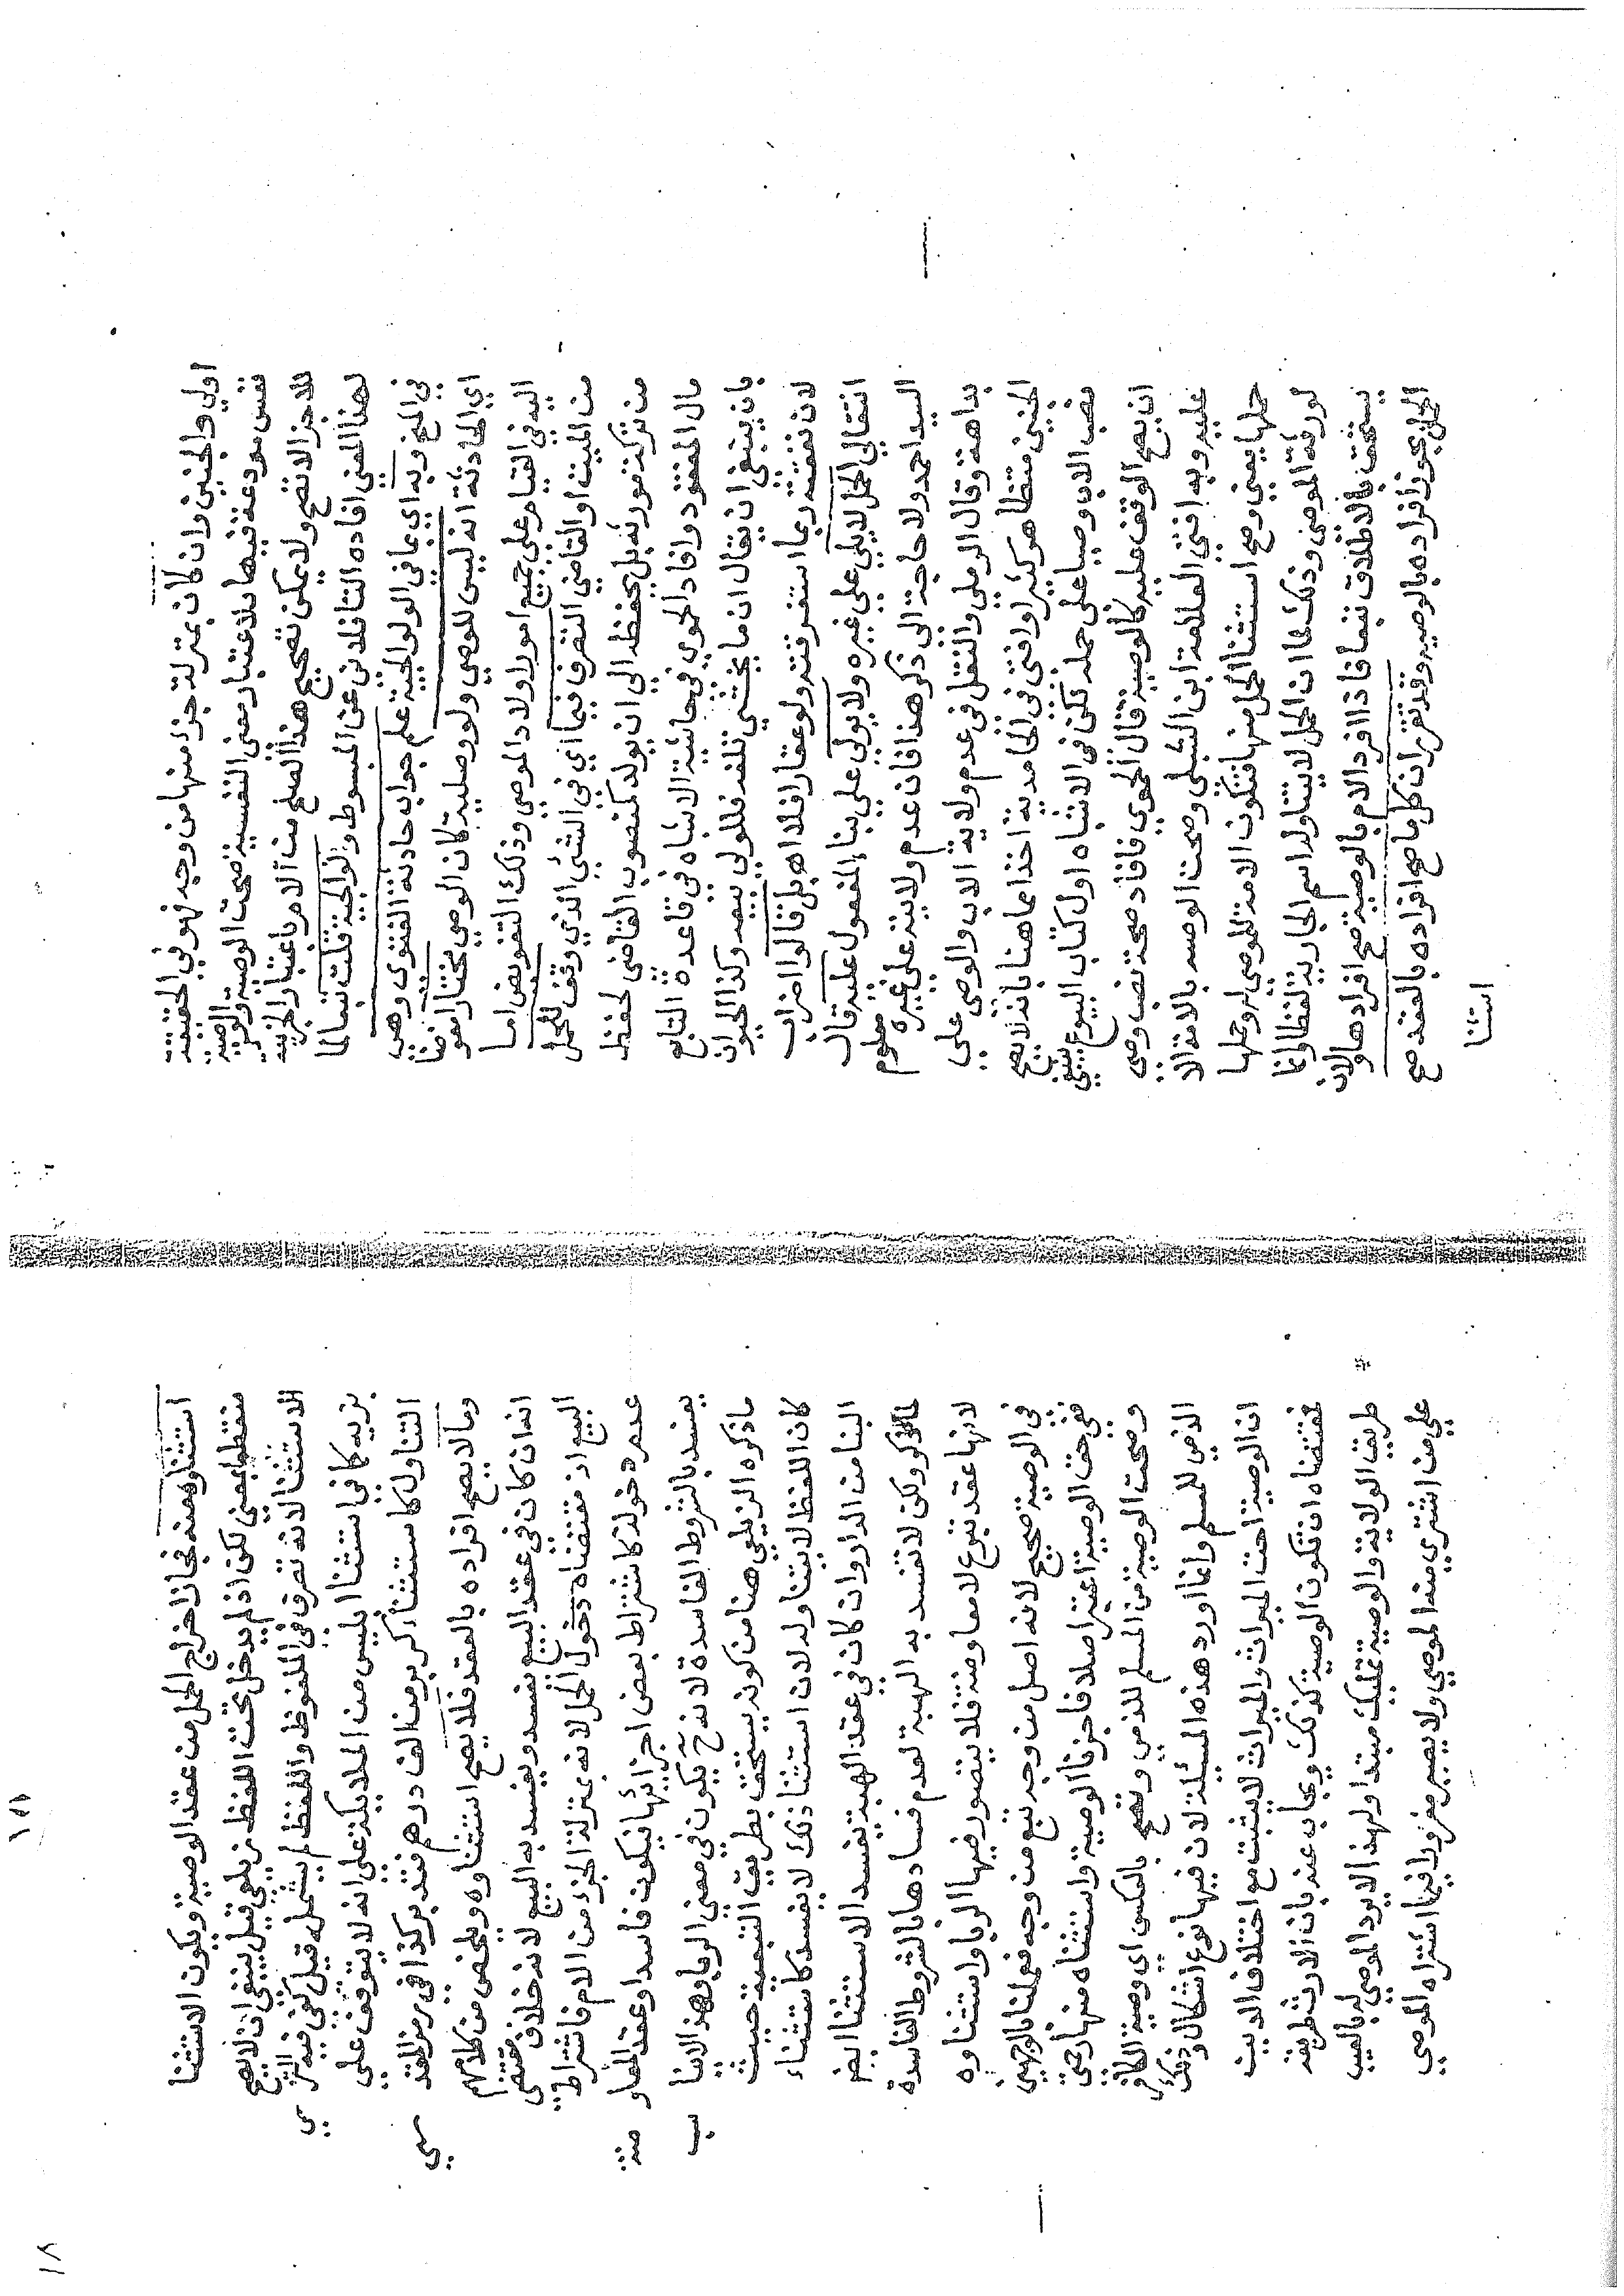 اولي والجنين وان كان بمنزلة جزء منها من وجه فهو في الحقيقة
نفس مودعة فيها فلاعتبار معنى النفسية صحت الوصية والوصية
للاجزا لا تصح ولا يمكن تصحيح هذا الصلح من الام باعتبار الجزئية
لهذا المعني افاده التتا فلا ني عن المبسوط والولوالجية قلت تبنا لما
في المنح وبه اي بما في الولوالجية علم جواب حادثة الفتوى وهي
اي الحادثة انه ليس للوصي ولو وصلية كان الوصي مختارا مفوضا
اليه في القيام على جميع امور اولاد الموصي وذلك التفويض اما
من الميت او القاضي التصرف فيما اي في الشئ الذي وقف للحمل
من تركة مورثه بل يحفظه الي ان يولد كمنصوب القاضي لحفظ
مال المفقود وافاد الحموي في حاشية الاشباه في قاعدة التابع
بان ينبغي ان يقال ان ما يخشي تلفه فللولي بيعه وكذا الحيوان
لان نفقته ربما استغرقته ولو عقارا فلا اه بل قالوا اضراب
انتقالي الحمل لا يلي علي غيره ولا يولي علي بناء المفعول عليه قال
السيد احمد ولا حاجة الى ذكر هذا فان عدم ولايته علي غيره معلوم
بداهة وقال الرملي والنقل في عدم ولاية الاب والوصي علي
الجنين متظاهر كثير وافتى في الحامدية اخذا مما هنا بانه لا يصح
نصب الاب وصيا على حمله لكن في الاشباه اول كتاب البيوع ينبغي
ان يصح الوقف عليه كالوصية قال الحموي فافاد صحة نصب وصي
عليه وبه افتي العلامة ابن الشلبي وصحت الوصيه بالامة الا
حملها يعني وصح استثنا الحمل منها فتكون الامة للموصي له وحملها
لورثة الموصي وذلك لما ان الحمل لا يتناوله اسم الجارية لفظا وانما
يستحق بالاطلاق تبعا فاذا افرد الام بالوصية صح افرادها ولان
الحمل يجوز افراده بالوصيه وقد تقرر ان كل ما صح افراده بالعقد صح
استثنا
استثناوه منه فجاز اخراج الحمل من عقد الوصية ويكون الاستثنا
منقطعا بمعني لكن اذ لم يدخل تحت اللفظ زيلعي قيل ينبغي ان لا يصح
الاستثنا لانه تصرف في الملفوظ واللفظ لم يشمله قيل كفي فيه التز
يي
بزييه كما في استثنا ابليس من الملايكة علي انه لا يتوقف علي
التناول كاستثناء كر بر من الف درهم فتدبر كذا في رمز المقد
سي
وما لا يصح افراده بالعقد فلا يصح استثناوه ويلخص من كلامهم
انه ان كان في عقد البيع تفسد ويفسد به البيع لانه خلاف مقتضى
البيع اذ مقتضاه دخول الحمل لانه بمنزلة الجزء من الام فاشتراط
عدم دخوله كاشتراط بعض اجزائها فيكون فاسدا وعقد المعاو
ضة
يفسد بالشروط الفاسدة لانه ح يكون في معني الربا وهذا الاينا
ب
ما ذكره الزيلعي هنا من كونه يستحق بطريق التبعية حيث
كان اللفظ لا يتناوله لان استثنا ذلك لا يفسد كاستثناء
البنا من الدار وان كان في عقد الهبة يفسد الاستثنا ايض
كالمذكور ولكن لا تفسد به الهبة لعدم فسادها بالشروط الفاسدة
لانها عقد تبرع لا معاوضة فلا يتصور فيها الربا واستثناوه
في الوصية صحيح لانه اصل من وجه تبع من وجه فعملنا بالوجهين
ففي حق الوصية اعتبر اصلا فاجزنا الوصية واستثناه منها زحتي
وصحت الوصية من المسلم للذمي وتصح بالعكس اي وصية الكافر
الذمي للمسلم وانما اورد هذه المسئلة لان فيها نوع اشكال وذلك
ان الوصية اخت الميراث والميراث لا يثبت مع اختلاف الدين
فمقتضاه ان تكون الوصية كذلك ويجاب عنه بان الارث طريقه
طريق الولاية والوصية تمليك مبتدا ولهذا لا يرد الموصي له بالعيب
علي من اشتري منه الموصي ولا يصير مغرورا فيما اشتراه الموصي
١٨